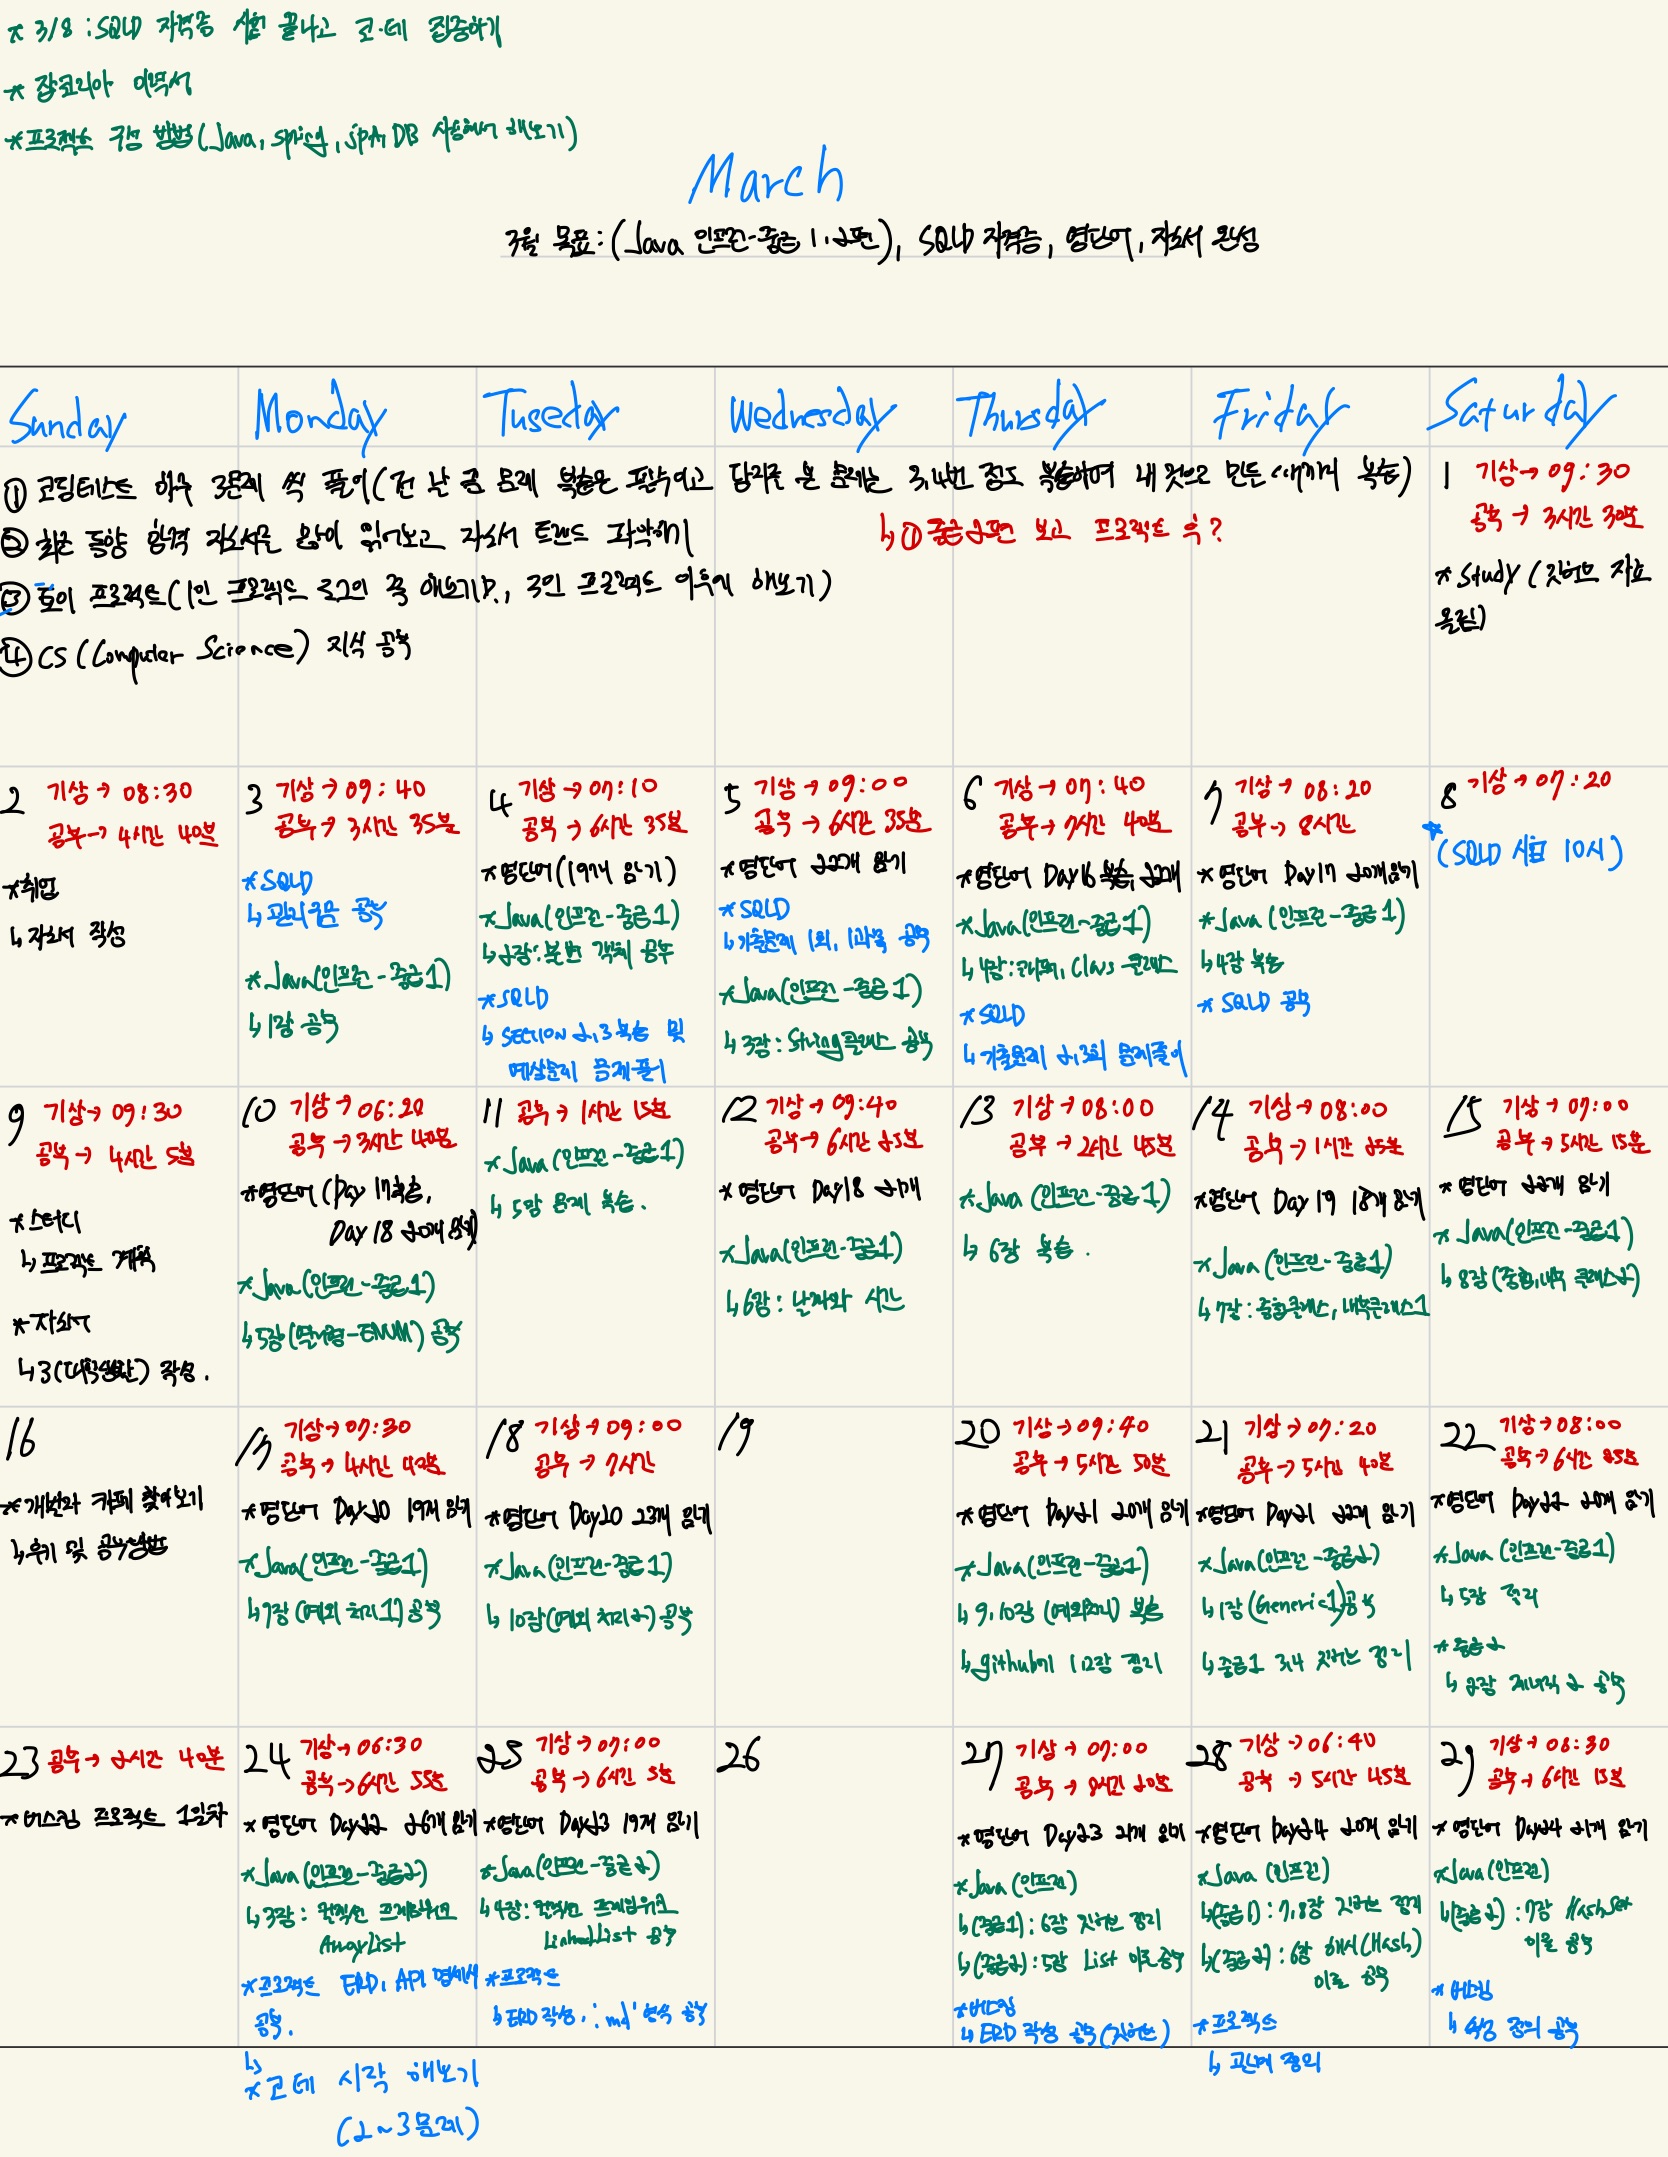 * 3/8 : SQLD 자격증 시험 끝나고 코·테 집중하기
* 잡코리아 이력서
* 프로젝트 구성 방법(Java, spring, JPA, DB 사용해서 해보기)
March
3월 목표 : (Java 인프런-중급 1, 2편), SQLD 자격증, 영단어, 자소서 완성
Sunday Monday Tuseday Wednesday Thursday Friday Saturday
① 코딩테스트 하루 3문제 씩 풀이(전 날 푼 문제 복습은 필수이고 답지로 본 문제는 3,4번 정도 복습하며 내 것으로 만든 때까지 복습)
② 최근 동향 합격 자소서를 많이 읽어보고 자소서 트렌드 파악하기
↳ ① 중급 2편 보고 프로젝트 ?
③ 토이 프로젝트(1인 프로젝트 로그인 쪽 해보기, 3인 프로젝트 해보기)
④ CS (Computer Science) 지식 공부
1 기상→ 09:30
공부→ 3시간 30분
* Study (깃허브 자료
올림)
2 기상→ 08:30
공부→ 4시간 40분
* 취업
↳ 자소서 작성
3 기상→ 09:40
공부→ 3시간 35분
* SQLD
↳ 관리구문 공부
* Java(인프런-중급1)
↳ 1장 공부
4 기상→ 07:10
공부→ 6시간 35분
* 영단어(19개 암기)
* Java(인프런-중급1)
↳ 2장: 불변 객체 공부
* SQLD
↳ SECTION 2,3 복습 및
예상문제 문제풀이
5 기상→ 09:00
공부→ 6시간 35분
* 영단어 22개 암기
* SQLD
↳ 기출문제 1회, 1과목 공부
* Java(인프런-중급1)
↳ 3장: String클래스 공부
6 기상→ 07:40
공부→ 7시간 40분
* 영단어 Day16 복습, 22개
* Java(인프런-중급1)
↳ 4장: 래퍼, Class 클래스
* SQLD
↳ 기출문제 2,3회 문제풀이
7 기상→ 08:20
공부→ 8시간
* 영단어 Day17 20개 암기
* Java(인프런-중급1)
↳ 4장 복습
* SQLD 공부
8 기상→ 07:20
* (SQLD 시험 10시)
9 기상→ 09:30
공부→ 4시간 5분
* 스터디
↳ 프로젝트 계획
* 자소서
↳ 3(대학생활) 작성.
10 기상→ 06:20
공부→ 3시간 40분
* 영단어(Day 17복습,
Day 18 20개 암기)
* Java(인프런-중급1)
↳ 5장(열거형-ENUM) 공부
11 공부→ 1시간 15분
* Java(인프런-중급1)
↳ 5장 문제 복습.
12 기상→ 09:40
공부→ 6시간 25분
* 영단어 Day18 21개
* Java(인프런-중급1)
↳ 6장: 날짜와 시간
13 기상→ 08:00
공부→ 2시간 45분
* Java(인프런-중급1)
↳ 6장 복습.
14 기상→ 08:00
공부→ 1시간 25분
* 영단어 Day 19 18개 암기
* Java(인프런-중급1)
↳ 7장: 중첩클래스, 내부클래스1
15 기상→ 07:00
공부→ 5시간 15분
* 영단어 22개 암기
* Java(인프런-중급1)
↳ 8장(중첩,내부 클래스2)
16
* 개발자 카페 찾아보기
↳ 후기 및 공부방법
17 기상→ 07:30
공부→ 4시간 40분
* 영단어 Day20 19개 암기
* Java(인프런-중급1)
↳ 9장(예외 처리1) 공부
18 기상→ 09:00
공부→ 7시간
* 영단어 Day20 23개 암기
* Java(인프런-중급1)
↳ 10장(예외 처리2) 공부
19
20 기상→ 09:40
공부→ 5시간 50분
* 영단어 Day21 20개 암기
* Java(인프런-중급1)
↳ 9,10장 (예외처리) 복습
↳ github에 1,2장 정리
21 기상→ 07:20
공부→ 5시간 40분
* 영단어 Day21 22개 암기
* Java(인프런-중급2)
↳ 1장(Generic1)공부
↳ 중급1 3,4 깃허브 정리
22 기상→ 08:00
공부→ 6시간 25분
* 영단어 Day22 20개 암기
* Java(인프런-중급1)
↳ 5장 정리
* 중급2
↳ 2장 제네릭2 공부
23 공부→ 2시간 40분
* 버스킹 프로젝트 1일차
24 기상→ 06:30
공부→ 6시간 55분
* 영단어 Day22 26개 암기
* Java(인프런-중급2)
↳ 3장: 컬렉션 프레임워크
ArrayList
* 프로젝트 ERD, API 명세서
공부.
25 기상→ 07:00
공부→ 6시간 5분
* 영단어 Day23 19개 암기
* Java(인프런-중급2)
↳ 4장: 컬렉션 프레임워크
LinkedList 공부
* 프로젝트
↳ ERD작성, '.md' 형식 공부
26
27 기상→ 07:00
공부→ 8시간 20분
* 영단어 Day23 21개 암기
* Java(인프런)
↳ (중급1): 6장 깃허브 정리
↳ (중급2): 5장 List 이론공부
* 버스킹
↳ ERD 작성 공부(깃허브)
28 기상→ 06:40
공부→ 5시간 45분
* 영단어 Day24 20개 암기
* Java (인프런)
↳ (중급1): 7,8장 깃허브 정리
↳ (중급2): 6장 해시(Hash)
이론 공부
* 프로젝트
↳ 관계 정의
29 기상→ 08:30
공부→ 6시간 15분
* 영단어 Day24 21개 암기
* Java(인프런)
↳ (중급2): 7장 HashSet
이론 공부
* 버스킹
↳ 속성 정의 공부
↳ * 코테 시작 해보기
(2~3문제)